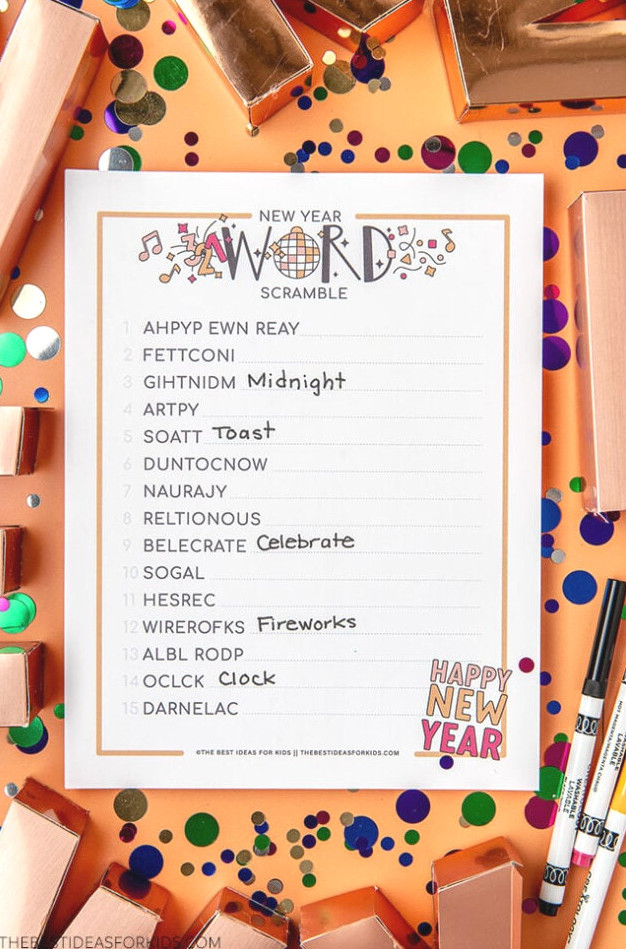 NEW YEAR
WORD
SCRAMBLE
1 AHPYP EWN REAY
2 FETTCONI
3 GIHTNIDM Midnight
4 ARTPY
5 SOATT Toast
6 DUNTOCNOW
7 NAURAJY
8 RELTIONOUS
9 BELECRATE Celebrate
10 SOGAL
11 HESREC
12 WIREROFKS Fireworks
13 ALBL RODP
14 OCLCK Clock
15 DARNELAC
HAPPY
NEW
YEAR
©THE BEST IDEAS FOR KIDS || THEBESTIDEASFORKIDS.COM
THEBESTIDEASFORKIDS.COM